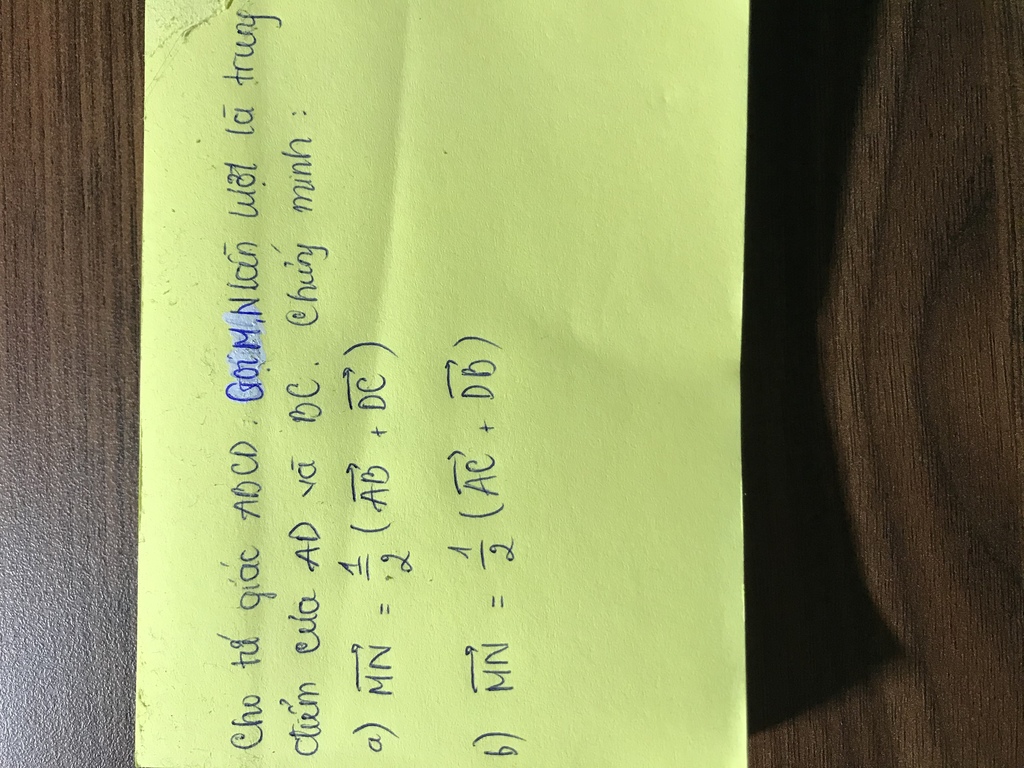 Cho tứ giác ABCD. Gọi M, N lần lượt là trung
điểm của AD và BC. Chứng minh :
a) $\overrightarrow{MN} = \frac{1}{2} (\overrightarrow{AB} + \overrightarrow{DC})$
b) $\overrightarrow{MN} = \frac{1}{2} (\overrightarrow{AC} + \overrightarrow{DB})$